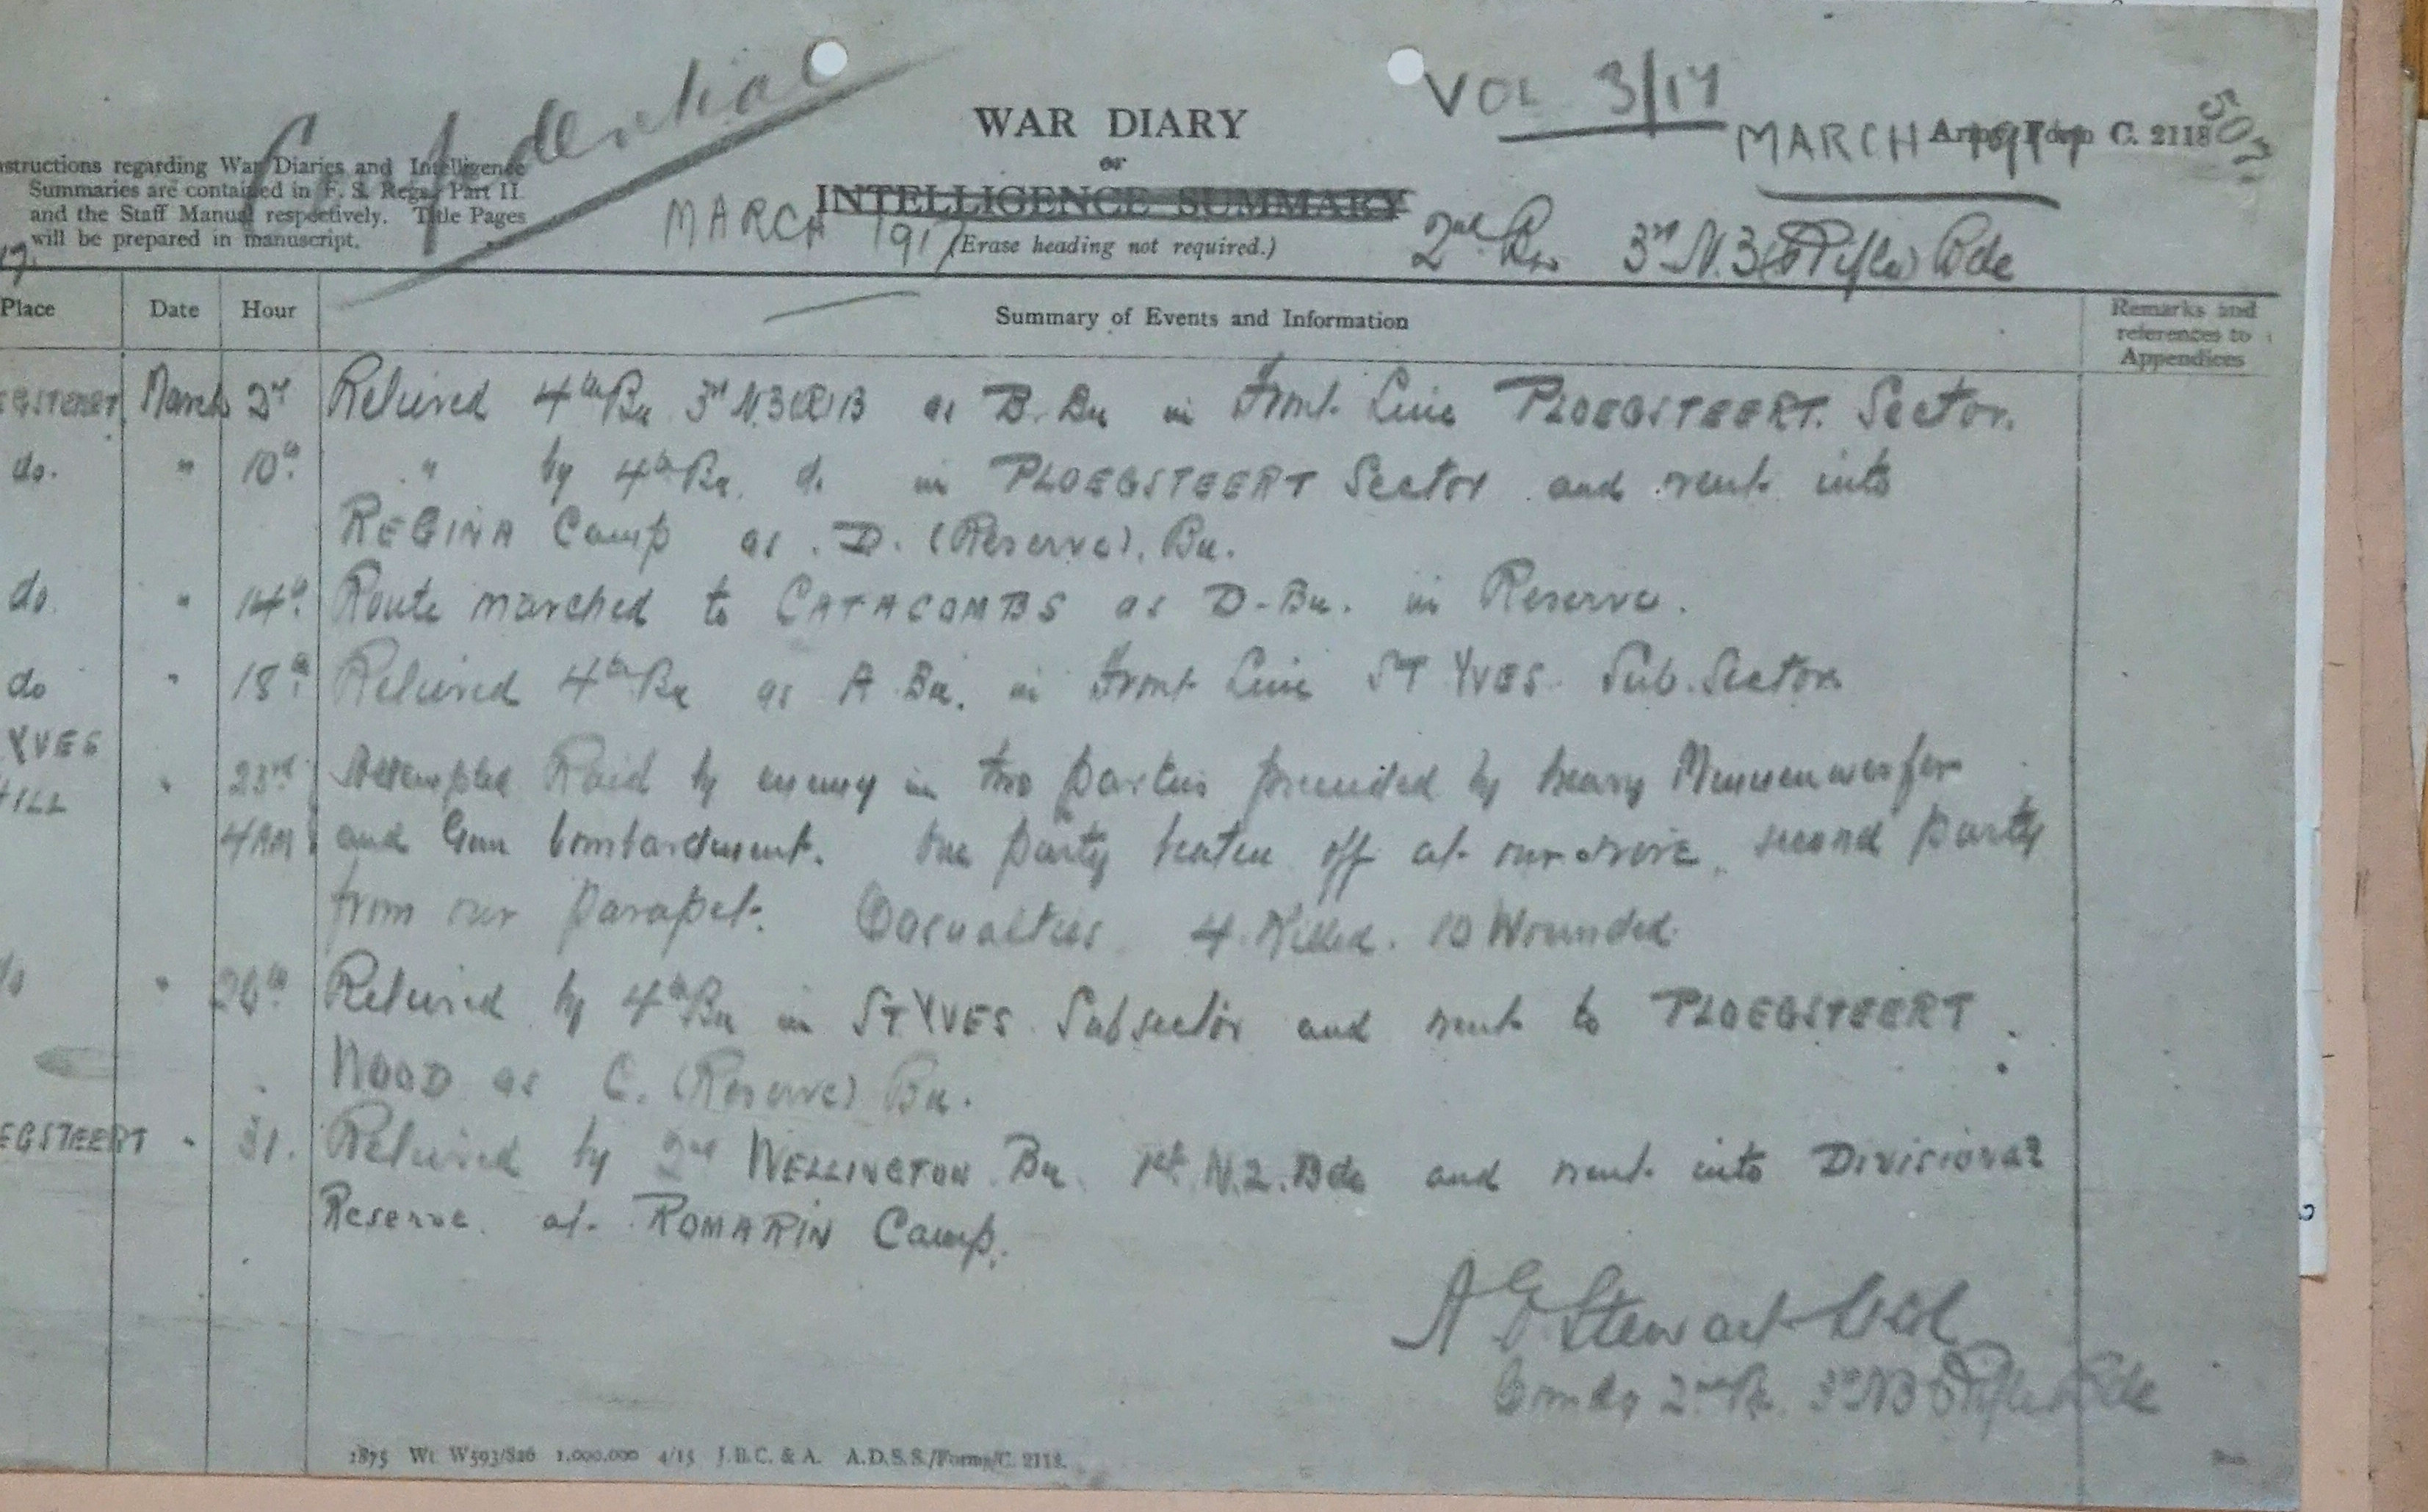 Confidential
VOL 3/17
WAR DIARY
MARCH 1917 Army Form C. 2118
or
INTELLIGENCE SUMMARY
MARCH 1917 (Erase heading not required.)
2nd Bn 3rd N.Z.(Rifle) Bde
507
structions regarding War Diaries and Intelligence
Summaries are contained in F. S. Regs., Part II.
and the Staff Manual respectively. Title Pages
will be prepared in manuscript.
Place Date Hour Summary of Events and Information Remarks and
references to
Appendices
EGSTEERT March 2nd Relieved 4th Bn 3rd N.Z.(R)B as B. Bn in Front Line PLOEGSTEERT. Sector.
do. " 10th " by 4th Bn. do in PLOEGSTEERT Sector and went into
REGINA Camp as D. (Reserve). Bn.
do. " 14th Route marched to CATACOMBS as D-Bn. in Reserve.
do " 18th Relieved 4th Bn as A Bn. in Front Line ST YVES Sub. Sector
YVES
HILL " 23rd Attempted Raid by enemy in two parties preceded by heavy Minnenwerfer
4AM and Gun bombardment. One party beaten off at our wire, second party
from our parapet. Casualties 4 Killed. 10 Wounded
do " 26th Relieved by 4th Bn in ST YVES Subsector and went to PLOEGSTEERT
WOOD as C. (Reserve) Bn.
EGSTEERT " 31. Relieved by 2nd WELLINGTON Bn. 1st N.Z. Bde and went into Divisional
Reserve at ROMARIN Camp.
A E Stewart Lt Col
Comdg 2nd Bn. 3rd NZ Rifle Bde
1875 Wt. W593/826 1,000,000 4/15 J.B.C. & A. A.D.S.S./Forms/C. 2118.